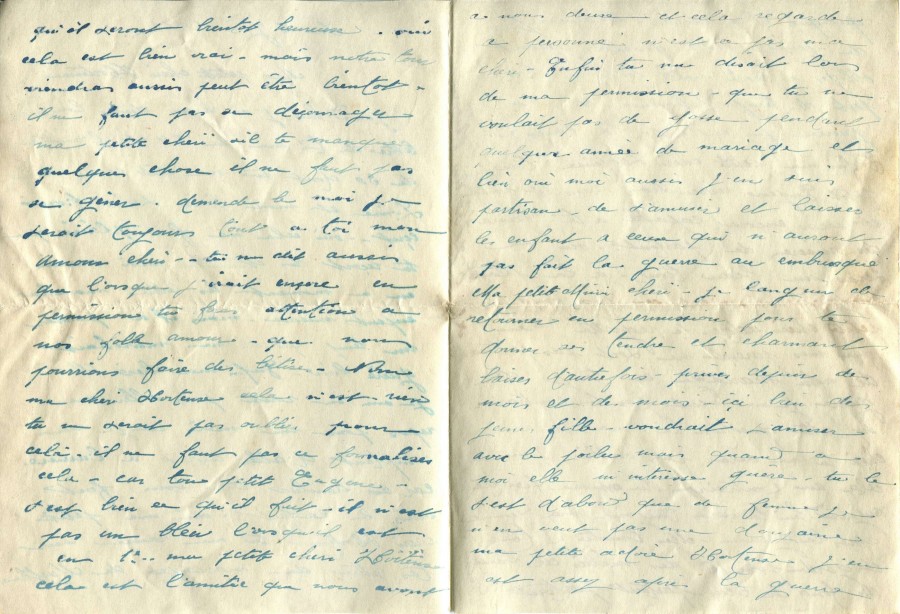 qu'il seront bientot heureuse. oui
cela est bien vrai - mais notre tour
viendras aussi peut être bientot -
il ne faut pas se décourages
ma petite cheri s'il te manque
quelques chose il ne faut pas
se gêner. demande le moi je
serait toujours tout a toi mon
amour cheri - tu me dit aussi
que lorsque j'irait encore en
permission tu feras attention a
nos folle amour - que nous
pourrions faire des bêtise - Non
ma cheri Hortense cela n'est rien
tu ne serait pas oublier pour
cela - il ne faut pas ce formalises
cela - car ton petit Eugene -
sest bien ce qu'il fait - il n'est
pas un bleu lorsqu'il est
en ma petite cheri Hortense
cela est l'amitier que nous avont
a nous deux et cela regarde
a personne n'est a pas ma
cheri - Enfin tu me disait lors
de ma permission - que tu ne
voulait pas de gosse pendant
quelque année de mariage et
bien oui moi aussi j'en suis
partisan - de s'amuser et laisser
les enfant a ceuse qui n'auront
pas fait la guerre au embusqué
Ma petite cheri - je languis de
retourner en permission pour te
donner ses tendre et charmant
baises d'autrefois - priver depuis de
mois et de mois - ici bien des
jeune fille voudrait amuser
avec le poilu mais quand a
moi elle m'interesse guère - tu le
sest d'abord que de femme je
n'en veut pas une douzaine
ma petite Hortense j'en
est assez apres la guerre